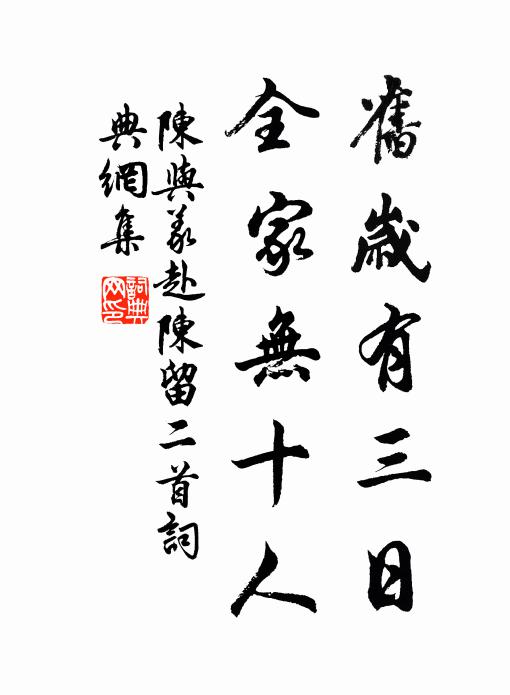 舊歲有三日
全家無十人
陳與義赴陳留二首詞
典網集
詞典
网印